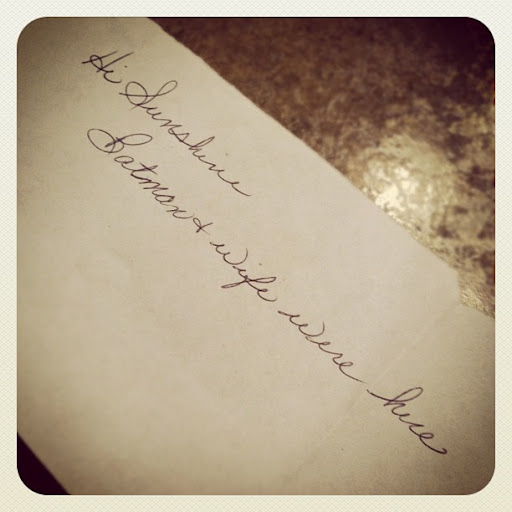 Hi Sunshine
Batman & wife were here